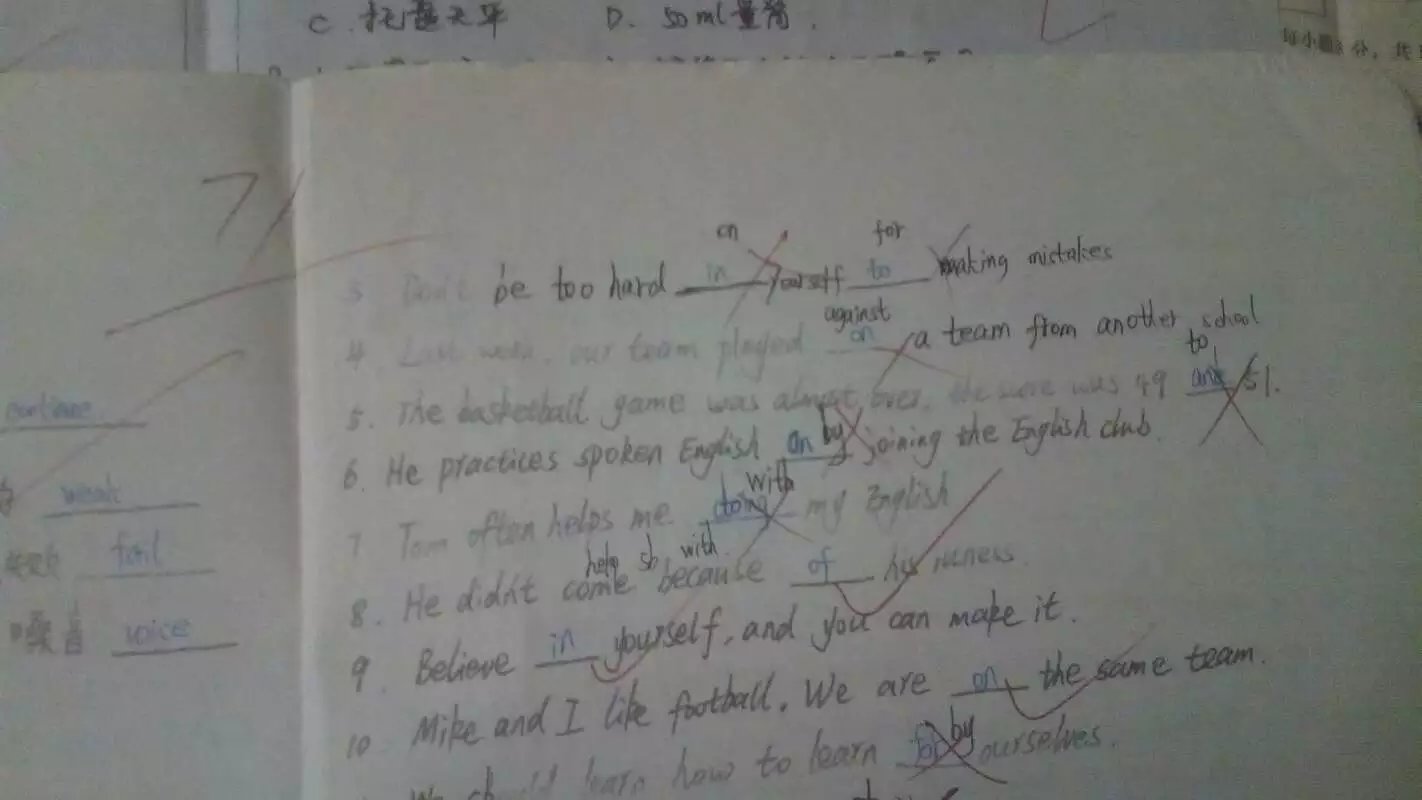 C. 托盘天平 D. 50ml量筒.
每小题 分, 共
71
continue
weak
fail
噪音 voice
on for
3 Don't be too hard in yourself to making mistakes
against
4 Last week, our team played on a team from another school
to
5. The basketball game was almost over, the score was 49 and 51.
by
6. He practices spoken English on joining the English club.
with
7 Tom often helps me doing my English
help sb. with
8. He didn't come because of his illness.
9. Believe in yourself, and you can make it.
10 Mike and I like football. We are on the same team.
by
We should learn how to learn for ourselves.